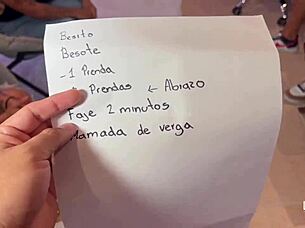 Besito
Besote
-1 Prenda
Prendas ← Abrazo
Faje 2 minutos
Mamada de verga